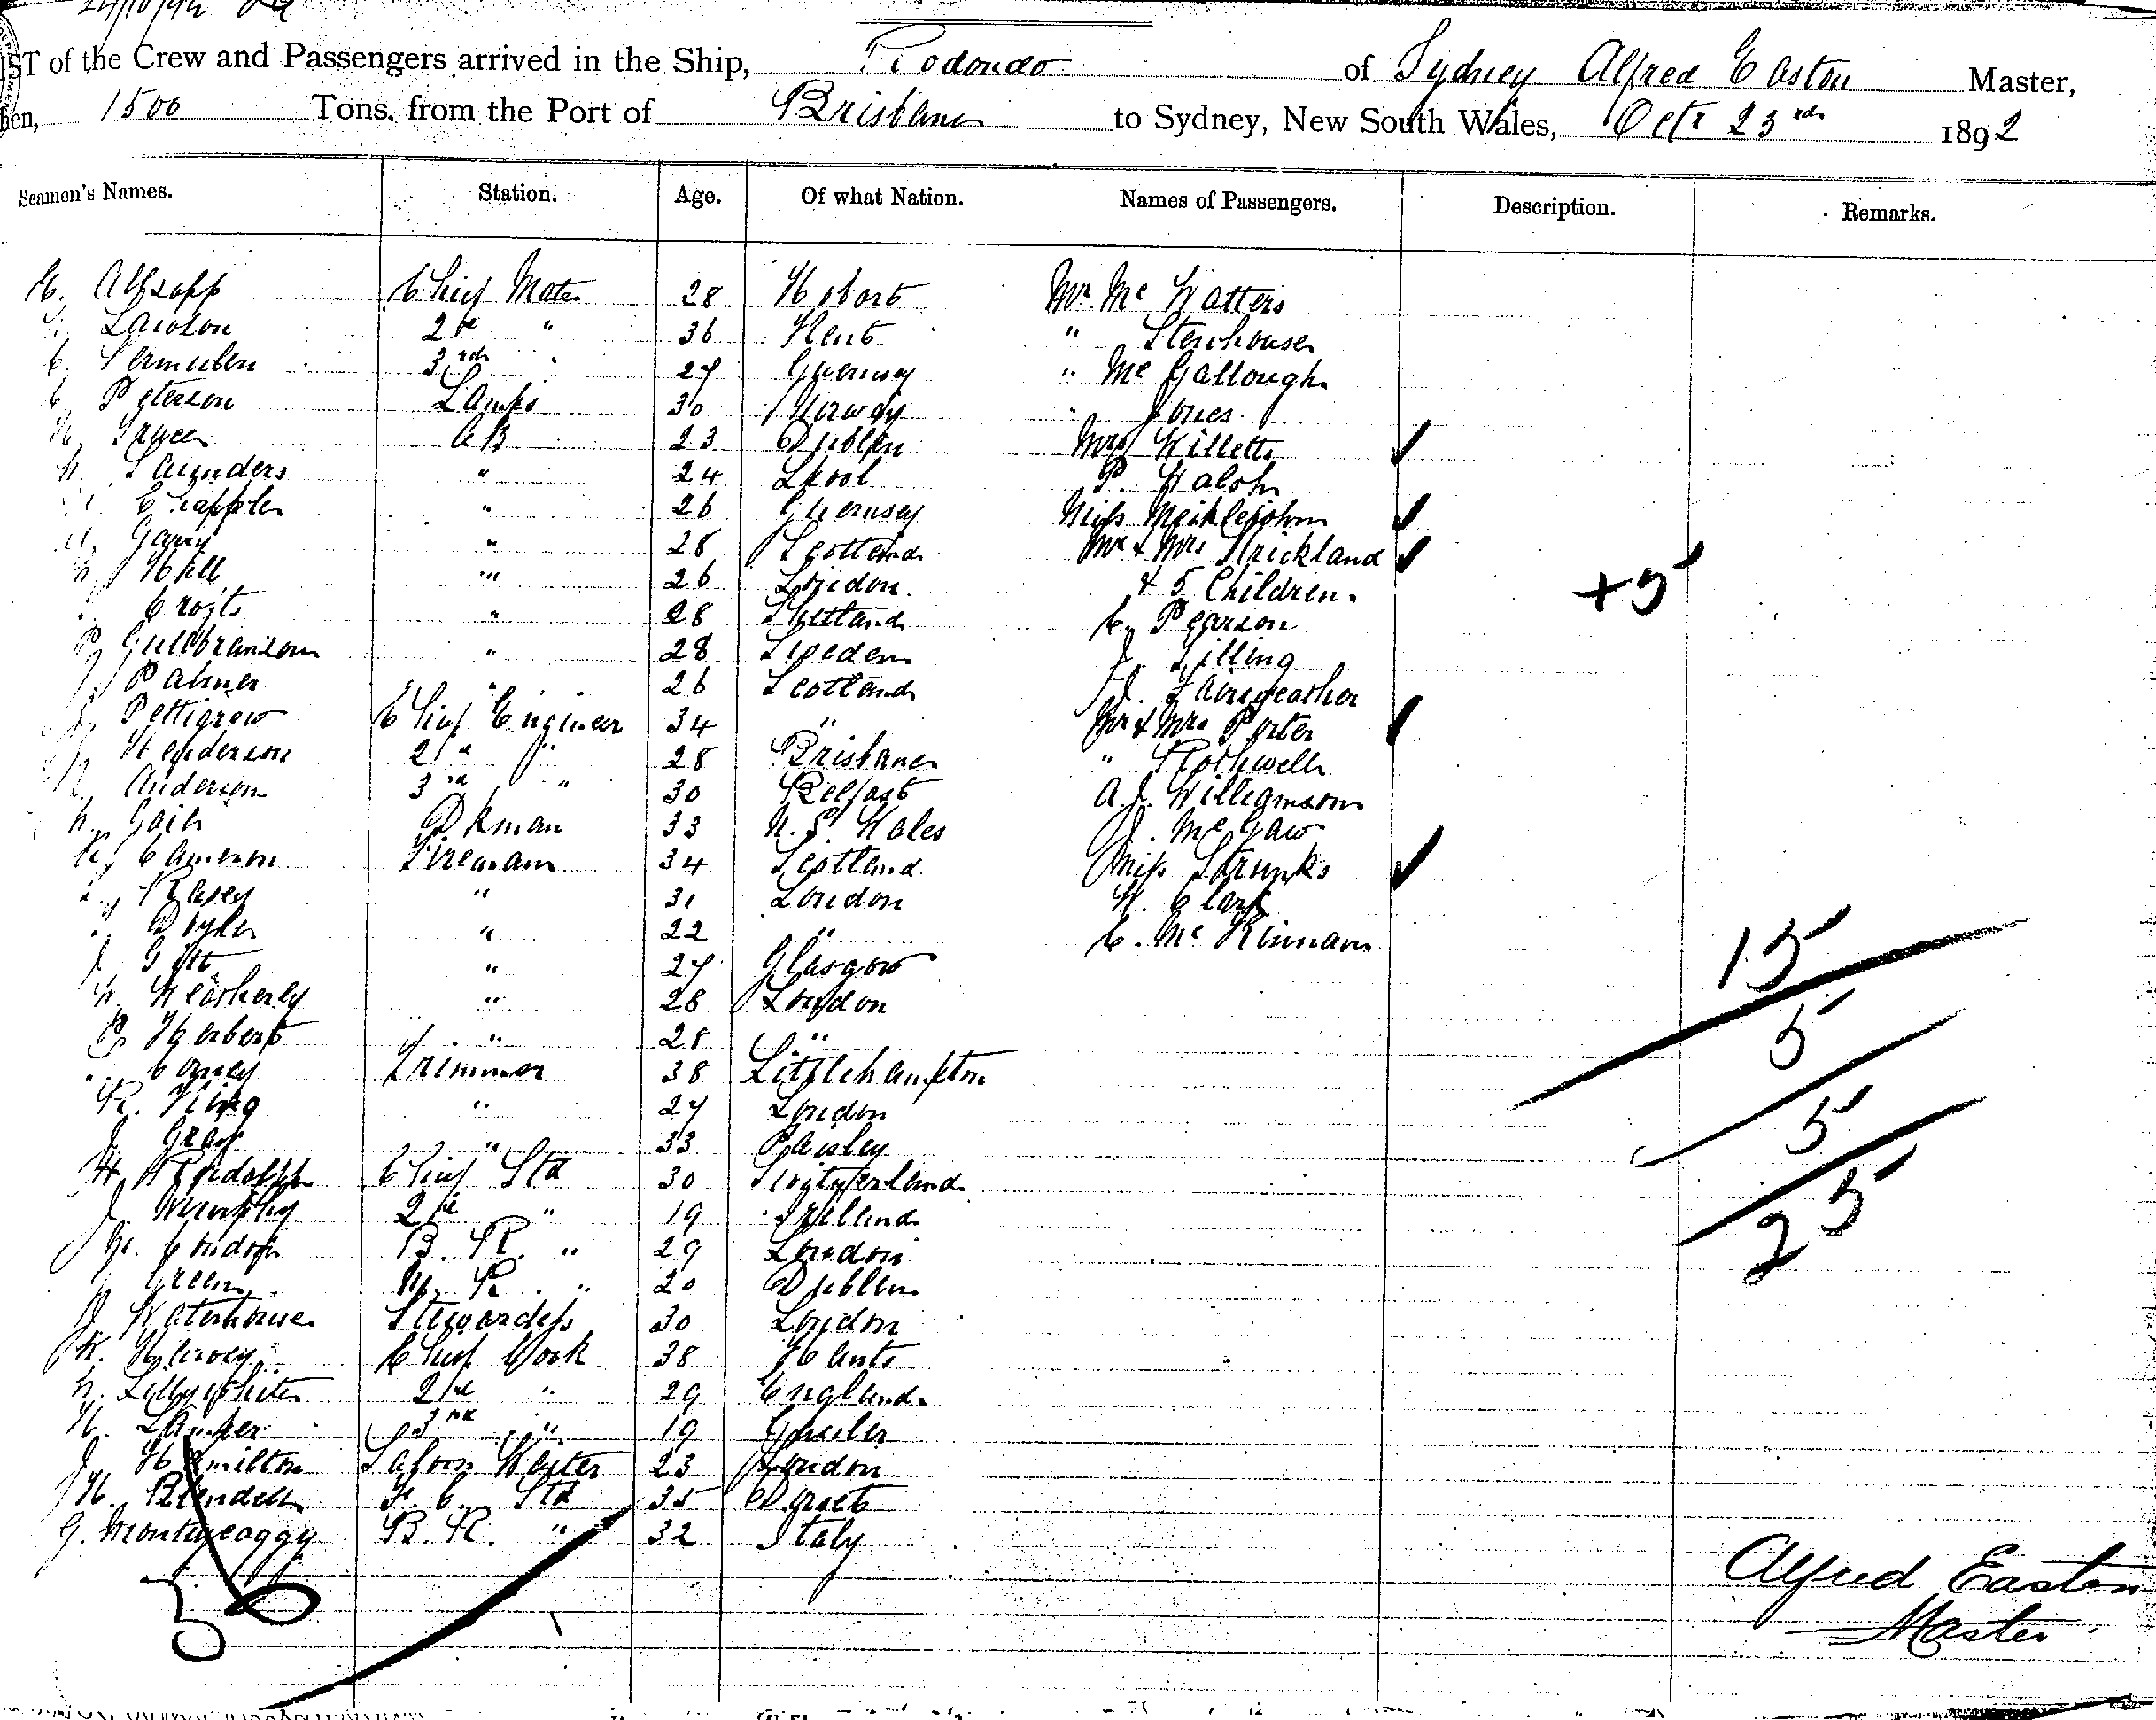 24/10/92
LIST of the Crew and Passengers arrived in the Ship, Rodondo of Sydney Alfred Easton Master,
1500 Tons, from the Port of Brisbane to Sydney, New South Wales, Octr 23rd 1892
Seamen's Names. Station. Age. Of what Nation. Names of Passengers. Description. Remarks.
H. Allsopp Chief Mate 28 Hobart Mr. Mc Watters
Lawson 2nd " 36 Kent " Stenhouse
C. 3rd 27 Guernsey " Mc Gallough
C. Peterson Lamps 30 Norway Jones
AB 23 Dublin Mrs Willetts
Saunders " 24 L'pool P. Walsh
Chapple " 26 Guernsey Miss Meiklejohn
Garry " 28 Scotland Mr & Mrs Strickland
Hall " 26 London & 5 Children. +5
Crofts " 28 Shetland C. Pearson
P. Gulbransom " 28 Sweden J. Tilling
J. Palmer " 26 Scotland J. Fairweather
J. Pettigrew Chief Engineer 34 " Mr & Mrs Porter
J. Henderson 2nd " 28 Brisbane " Rothwell
Anderson 3rd " 30 Belfast A.J. Williamson
Gair Dkman 33 N. S. Wales J. Mc Gaw
Cameron Fireman 34 Scotland Miss Strunks
Casey " 31 London W. Clark
Doyle " 22 " C. Mc Kinnam
J. Gott " 27 Glasgow 15
W. Weatherly " 28 London 5
Herbert " 28 "
Corney Trimmer 38 Littlehampton 5
R. King " 27 London
J. Gray " 33 Paisley
H. Chief Std 30 Switzerland 25
J. Murphy 2nd " 19 Ireland
London B. R. " 29 London
J. Green M. R. " 20 Dublin
J. Waterhouse Stewardess 30 London
W. Harvey Chief Cook 38 Hants
W. Lillywhite 2nd " 29 England
H. Lamper 3rd " 19
J. Hamilton Saloon Waiter 23 London
H. Blundell F. C. Std 35 Dorset
G. Monteycaggy B. R. " 32 Italy
36
Alfred Easton
Master